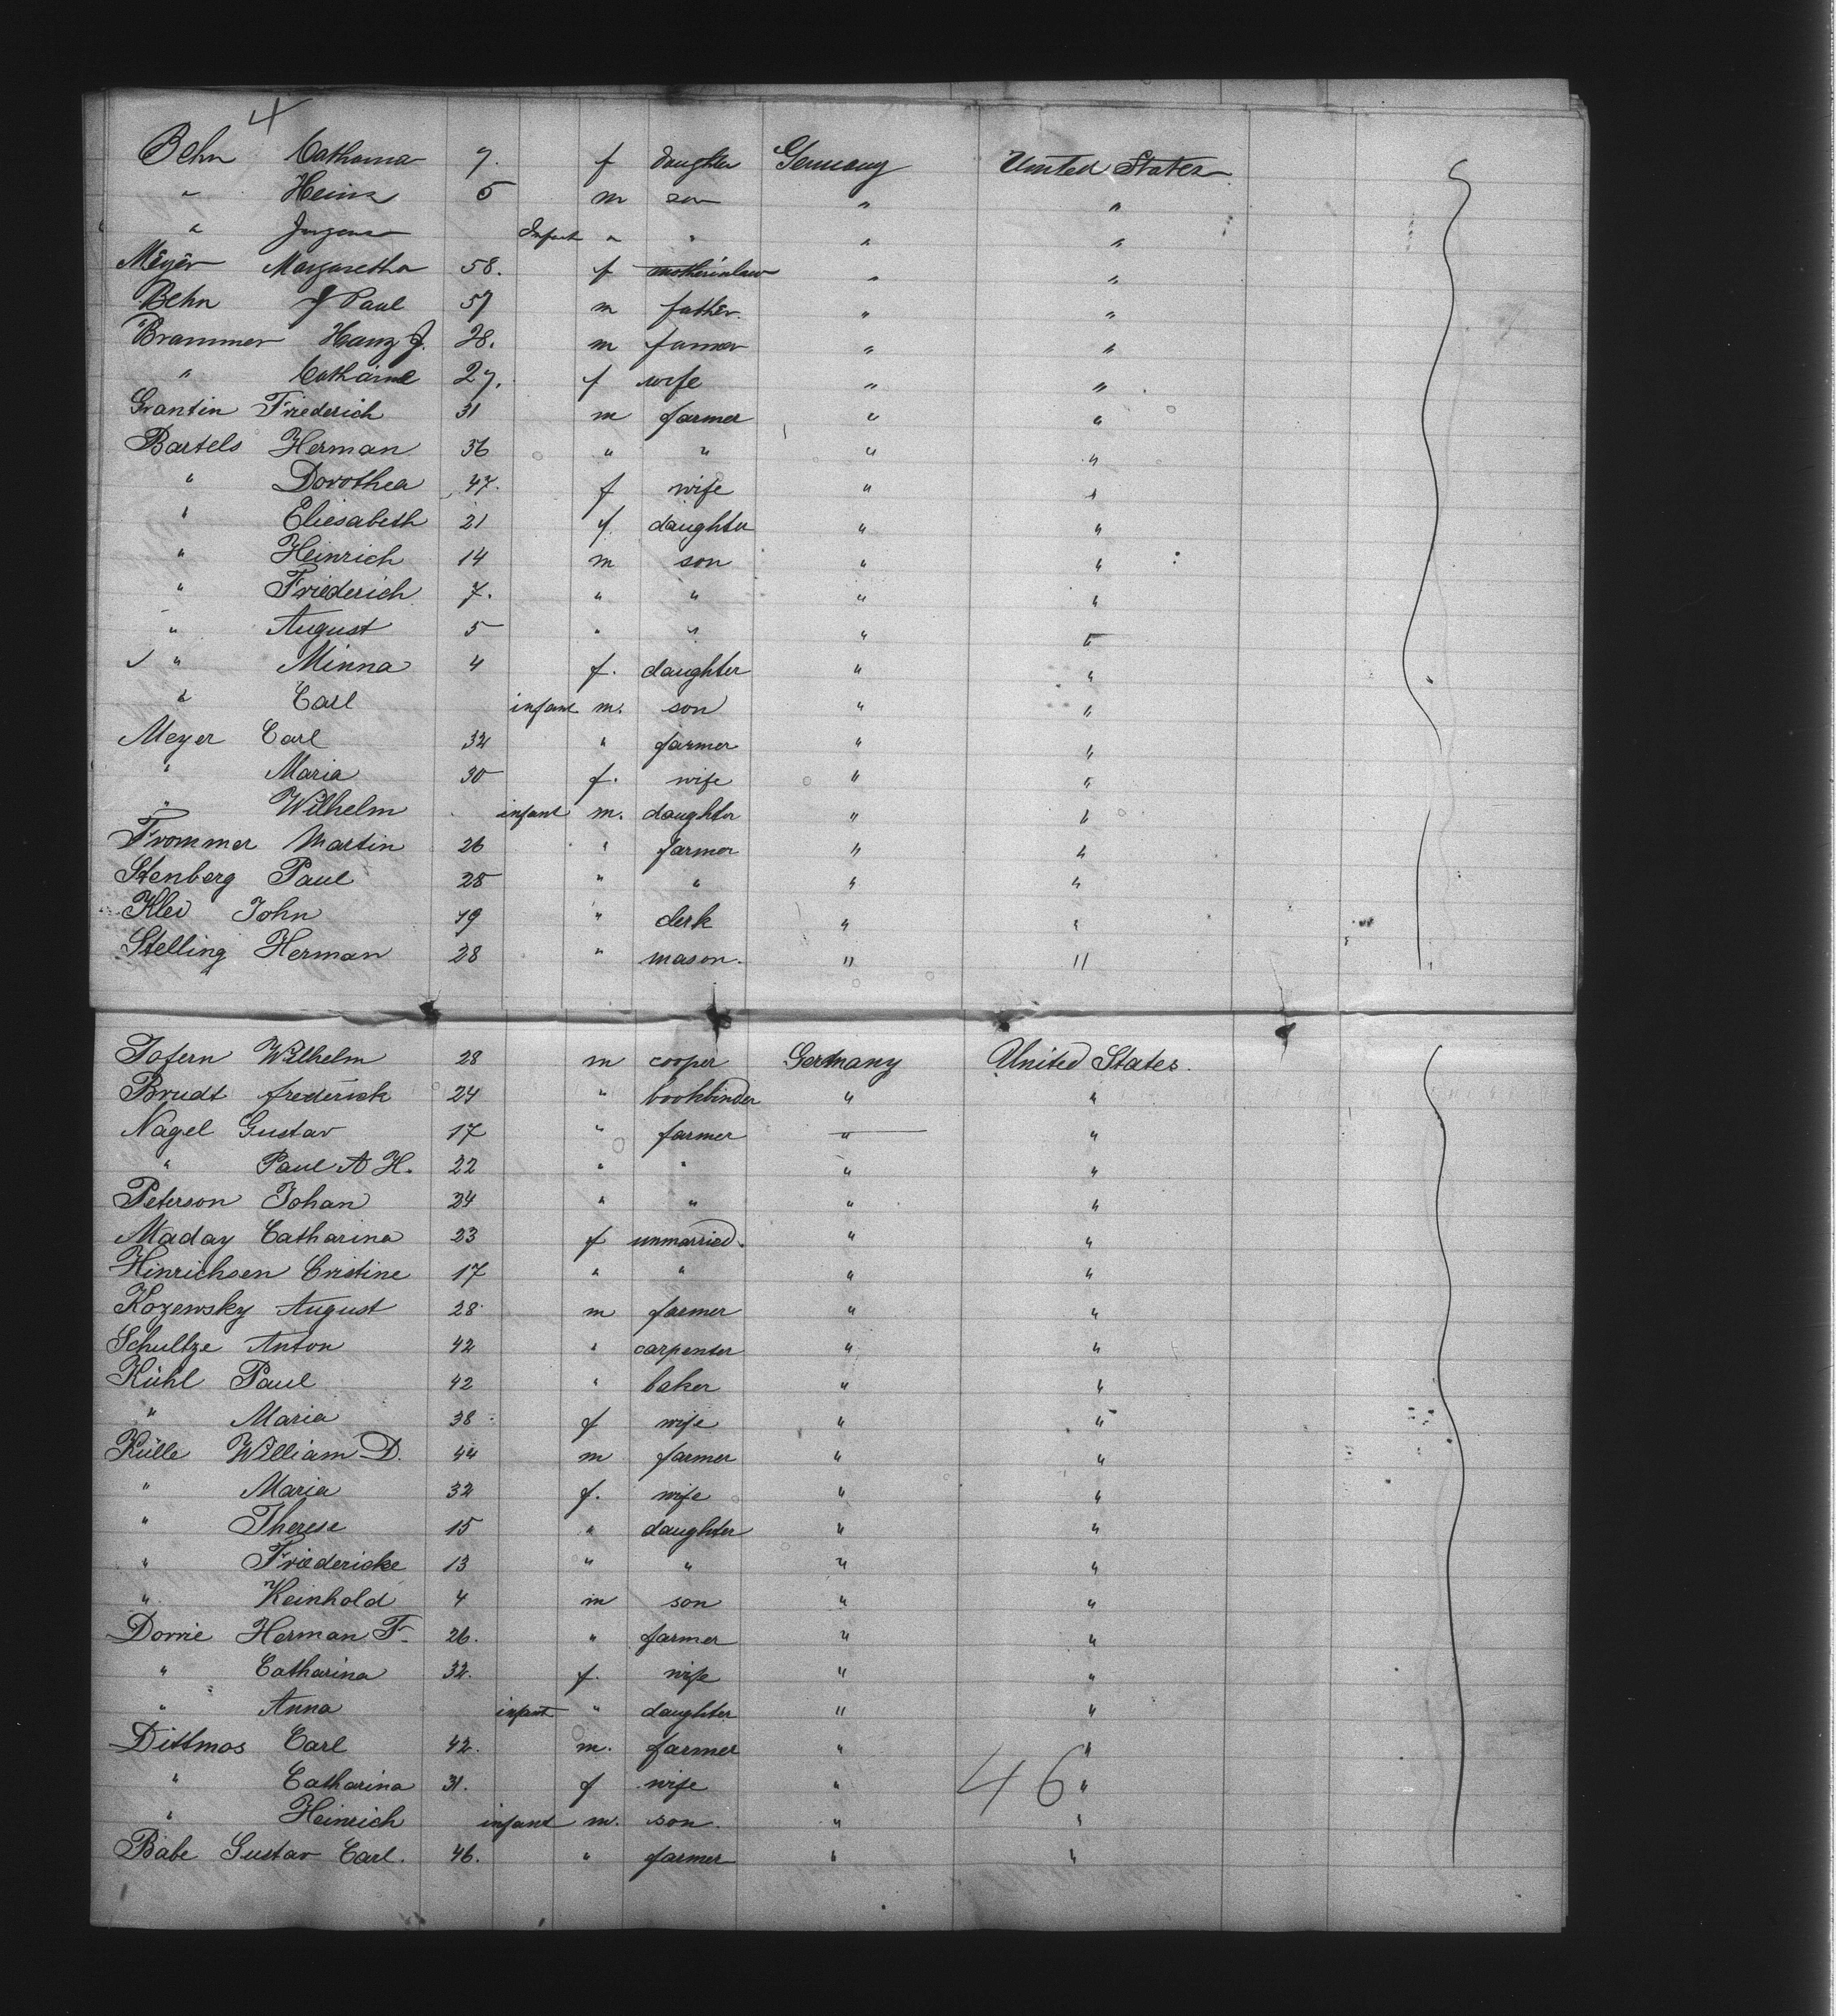 4
Behn Catharina 7. f daughter Germany United States
" Heinr 5 m son " "
" Jurgen Infant " " " "
Meyer Margaretha 58. f motherinlaw " "
Behn J Paul 57 m father. " "
Brammer Hanz J. 28. m farmer " "
" Catharine 27. f wife " "
Grantin Friederich 31 m farmer " "
Bartels Herman 36 " " " "
" Dorothea 47. f wife " "
" Eliesabeth 21 f daughter " "
" Heinrich 14 m son " "
" Friederich 7. " " " "
" August 5 " " " "
" Minna 4 f. daughter " "
" Carl infant m. son " "
Meyer Carl 32 " farmer " "
" Maria 30 f. wife " "
" Wilhelm infant m. daughter " "
Frommer Martin 26 " farmer " "
Stenberg Paul 28 " " " "
Klei John 19 " clerk " "
Stelling Herman 28 " mason. " "
Tofern Wilhelm 28 m cooper Germany United States.
Brudt frederick 24 " bookbinder " "
Nagel Gustav 17 " farmer " "
" Paul A H. 22 " " " "
Peterson Johan 24 " " " "
Maday Catharina 23 f unmarried. " "
Hinrichsen Cristine 17 " " " "
Kozewsky August 28 m farmer " "
Schultze Anton 42 " carpenter " "
Kühl Paul 42 " baker " "
" Maria 38 f wife " "
Külle William D. 44 m farmer " "
" Maria 32 f. wife " "
" Therese 15 " daughter " "
" Friedericke 13 " " " "
" Reinhold 4 m son " "
Dorrie Herman F. 26. " farmer " "
" Catharina 32. f. wife " "
" Anna infant " daughter " "
Dittmos Carl 42. m. farmer " "
" Catharina 31. f wife " 46 "
" Heinrich infant m. son. " "
Babe Gustav Carl. 46. " farmer " "